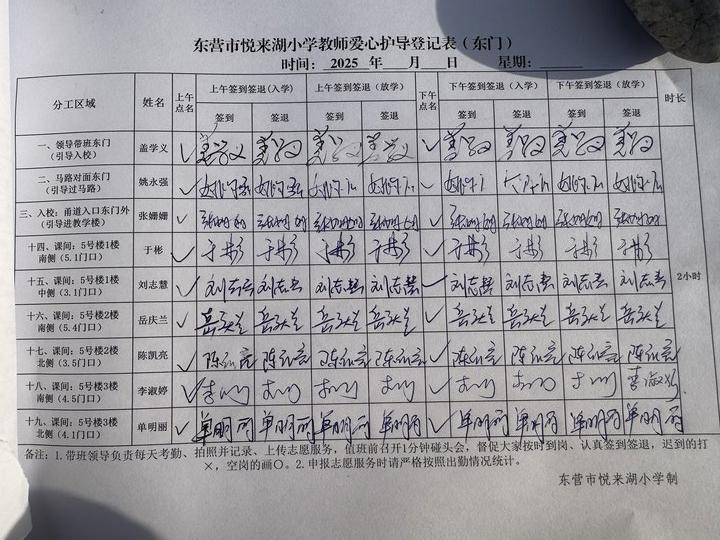 东营市悦来湖小学教师爱心护导登记表（东门）
时间： 2025 年 月 日 星期：
分工区域 姓名 上午点名 上午签到签退(入学) 上午签到签退（放学） 下午点名 下午签到签退（入学） 下午签到签退（放学） 时长
签到 签退 签到 签退 签到 签退 签到 签退
一、领导带班东门
（引导入校） 盖学义 ✓ ✓
二、马路对面东门
（引导过马路） 姚永强 ✓ ✓
三、入校：甬道入口东门外
（引导进教学楼） 张姗姗 ✓ 张姗姗 张姗姗 张姗姗 张姗姗 ✓ 张姗姗 张姗姗 张姗姗 张姗姗
十四、课间：5号楼1楼
南侧（5.1门口） 于彬 ✓ 于彬 于彬 于彬 于彬 ✓ 于彬 于彬 于彬 于彬
十五、课间：5号楼1楼
中侧（3.1门口） 刘志慧 ✓ 刘志慧 刘志慧 刘志慧 刘志慧 ✓ 刘志慧 刘志慧 刘志慧 刘志慧
2小时
十六、课间：5号楼2楼
南侧（5.4门口） 岳庆兰 ✓ 岳庆兰 岳庆兰 岳庆兰 岳庆兰 ✓ 岳庆兰 岳庆兰 岳庆兰 岳庆兰
十七、课间：5号楼2楼
北侧（3.5门口） 陈凯亮 ✓ 陈凯亮 陈凯亮 陈凯亮 陈凯亮 ✓ 陈凯亮 陈凯亮 陈凯亮 陈凯亮
十八、课间：5号楼3楼
南侧（4.5门口） 李淑婷 ✓ ✓ 李淑婷
十九、课间：5号楼3楼
北侧（4.1门口） 单明丽 ✓ 单明丽 单明丽 单明丽 单明丽 ✓ 单明丽 单明丽 单明丽 单明丽
备注：1.带班领导负责每天考勤、拍照并记录、上传志愿服务，值班前召开1分钟碰头会，督促大家按时到岗、认真签到签退，迟到的打
×，空岗的画〇。2.申报志愿服务时请严格按照出勤情况统计。
东营市悦来湖小学制